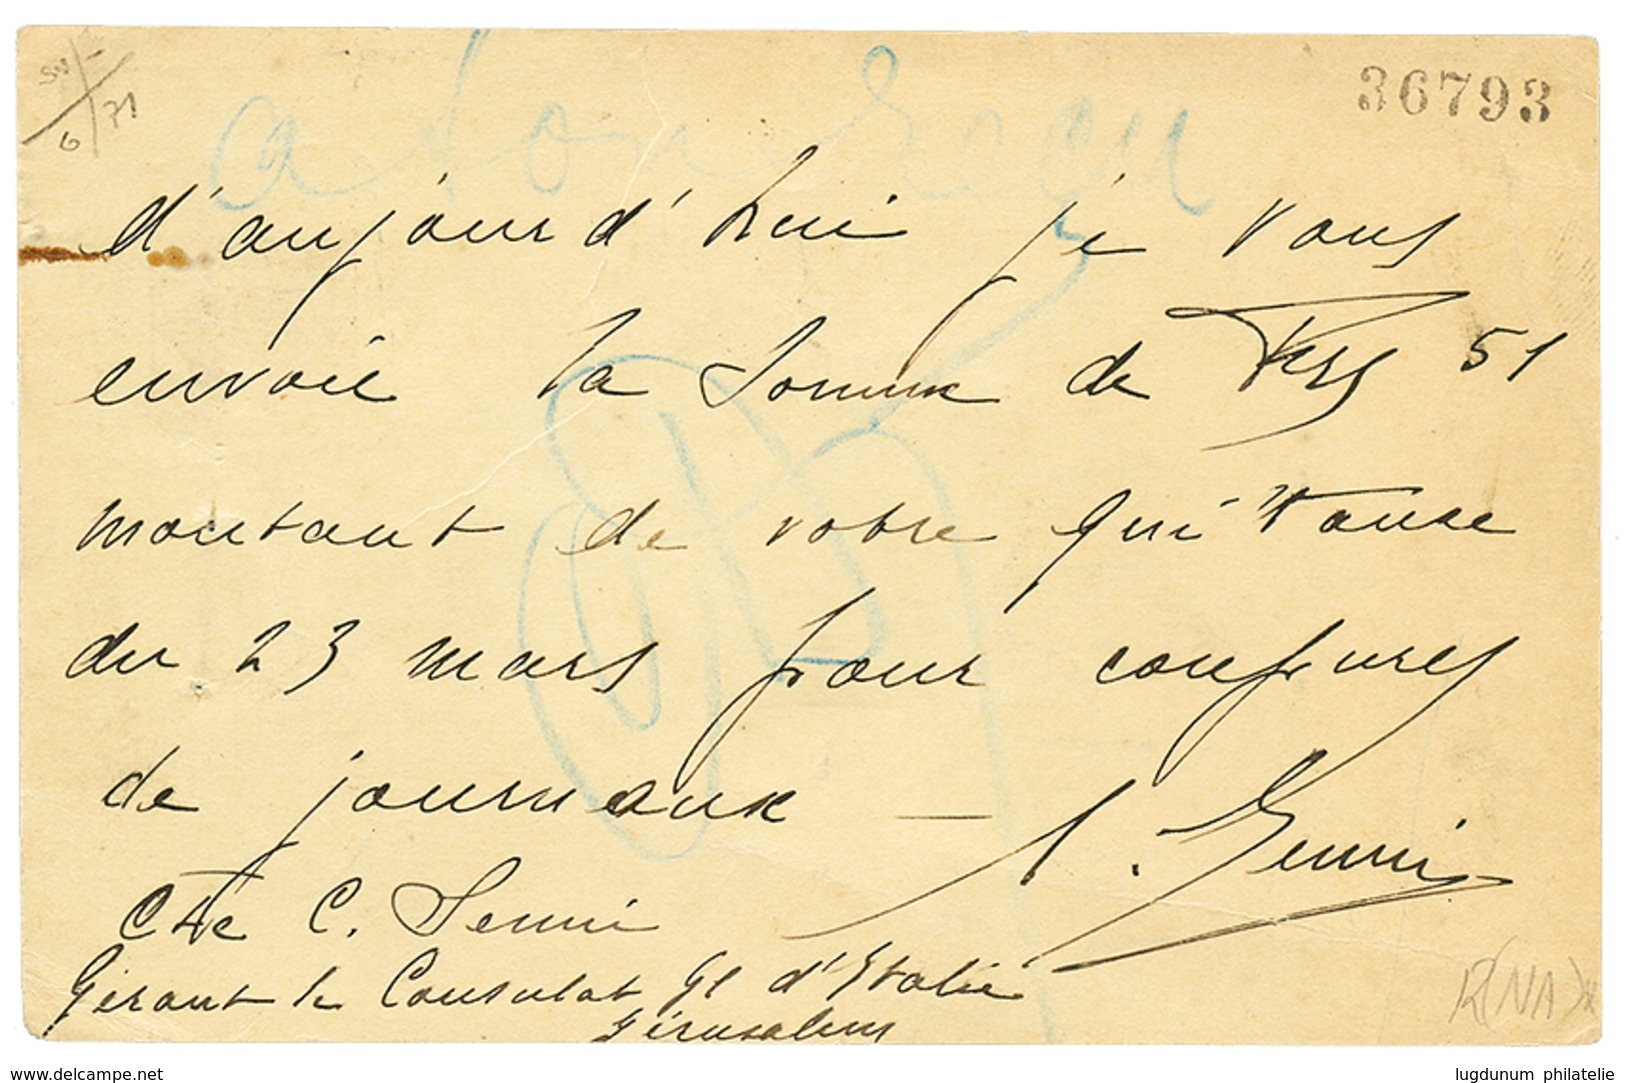 36793
d'aujourd'hui je vous
envoie la somme de Frs 51
montant de votre quittance
du 23 mars pour coupures
de journaux —
Cte C. Senni
Gérant le Consulat Gl d'Italie
Jérusalem
www.delcampe.net
lugdunum philatelie